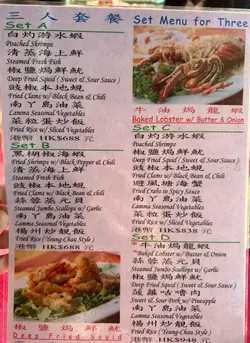 三人套餐
Set Menu for Three
Set A
白灼游水蝦
Poached Shrimps
清蒸海上鮮
Steamed Fresh Fish
椒鹽焗鮮魷
Deep Fried Squid ( Sweet & Sour Sauce )
豉椒本地蜆
Fried Clams w/ Black Bean & Chili
南丫島油菜
Lamma Seasonal Vegetables
菜粒蛋炒飯
Fried Rice w/ Sliced Vegetables
港幣 HK$688 元
Set B
黑椒猴海蝦
Fried Shrimps w/ Black Pepper & Chili
清蒸海上鮮
Steamed Fresh Fish
豉椒本地蜆
Fried Clams w/ Black Bean & Chili
蒜蓉蒸元貝
Steamed Jumbo Scallops w/ Garlic
南丫島油菜
Lamma Seasonal Vegetables
楊州炒靚飯
Fried Rice ( Yeung Chau Style )
港幣 HK$ 元
椒鹽焗鮮魷
Deep Fried Squid
牛油焗龍蝦
Baked Lobster w/ Butter & Onion
Set C
白灼游水蝦
Poached Shrimps
清蒸海上鮮
Steamed Fresh Fish
椒鹽焗鮮魷
Deep Fried Squid ( Sweet & Sour Sauce )
豉椒本地蜆
Fried Clams w/ Black Bean & Chili
避風塘海蟹
Fried Crabs in Spicy Sauce
南丫島油菜
Lamma Seasonal Vegetables
菜粒炒靚飯
Fried Rice w/ Sliced Vegetables
港幣 HK$838 元
Set D
*牛油焗龍蝦
*Baked Lobster w/ Butter & Onion
蒜蓉蒸元貝
Steamed Jumbo Scallops w/ Garlic
椒鹽焗鮮魷
Deep Fried Squid ( Sweet & Sour Sauce )
菠蘿咕嚕肉
Sweet & Sour Pork w/ Pineapple
南丫島油菜
Lamma Seasonal Vegetables
楊州炒靚飯
Fried Rice ( Yeung Chau Style )
港幣 HK$948 元